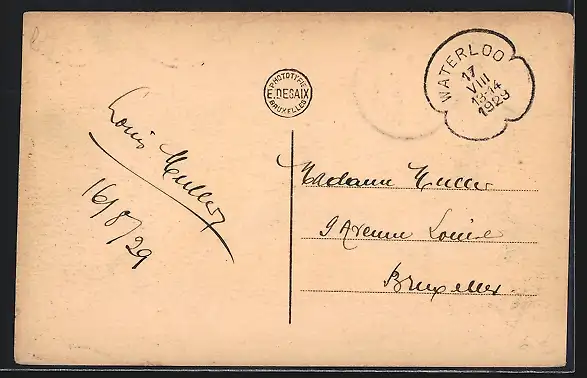 Louis Muller
16/8/29
PHOTOTYPIE
E. DESAIX
BRUXELLES
WATERLOO
17
VIII
13-14
1929
Madame Muller
9 Avenue Louise
Bruxelles.